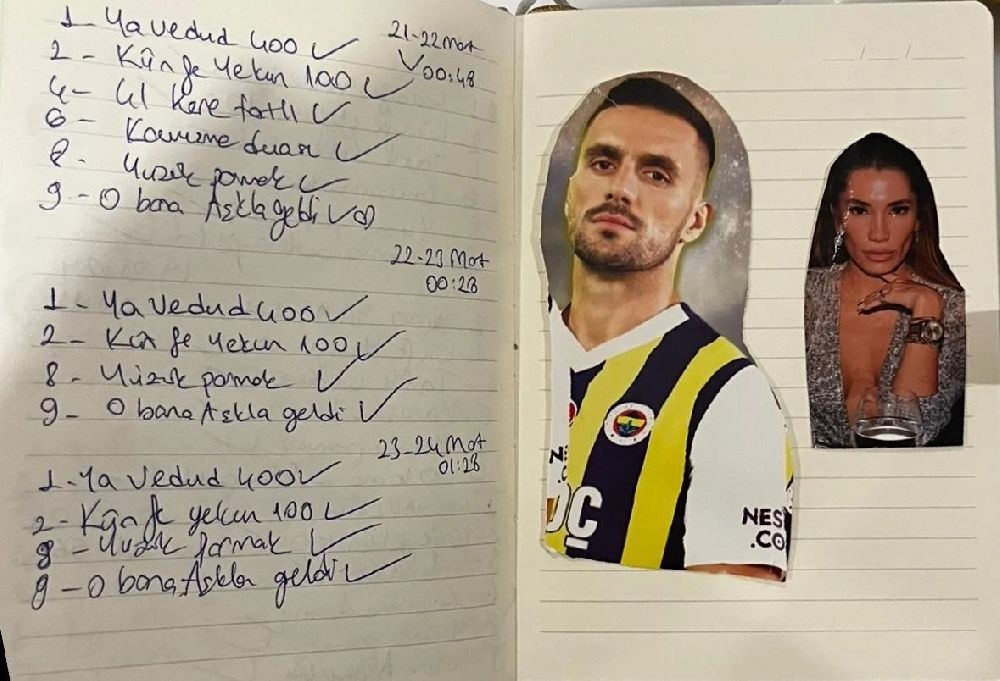 1- Ya Vedud 400 ✓
21-22 Mart
2 - Kün fe Yekun 100 ✓
✓ 00:48
4- 41 kere fatlı ✓
6 - Kavuşme duası ✓
8 - Yüzük parmak ✓
9 - O bana Aşkla geldi ✓
22-23 Mart
00:28
1 - Ya Vedud 400 ✓
2 - Kün fe Yekun 100 ✓
8 - Yüzük parmak ✓
9 - O bana Aşkla geldi ✓
23-24 Mart
01:28
1-Ya Vedud 400 ✓
2 - Kün fe yekun 100 ✓
8 - Yuzuk parmak ✓
9 - O bana Aşkla geldi ✓
NES
.CO